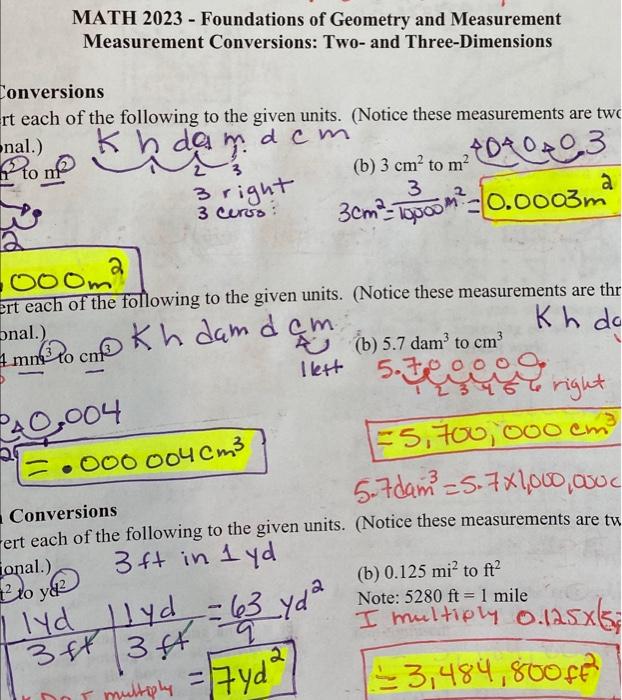 MATH 2023 - Foundations of Geometry and Measurement
Measurement Conversions: Two- and Three-Dimensions
Conversions
ert each of the following to the given units. (Notice these measurements are two
onal.)
K h dam d c m
to m²
1 2 3
3 right
3 ceros:
(b) 3 cm² to m²
0 0 0.3
3cm² = 3/10000 m² = 0.0003m²
000m²
ert each of the following to the given units. (Notice these measurements are thr
onal.)
K h dam d cm
4 mm³ to cm³
1 left
K h da
(b) 5.7 dam³ to cm³
5.700000
1 2 3 4 5 6 right
0.004
= .000 004 cm³
= 5,700,000 cm³
5.7dam³ = 5.7 x 1,000,000c
Conversions
ert each of the following to the given units. (Notice these measurements are tw
ional.)
3 ft in 1 yd
t² to yd²
(b) 0.125 mi² to ft²
Note: 5280 ft = 1 mile
I multiply 0.125x(5
1yd 1yd = 63 yd²
3 ft 3 ft 9
multiply = 7yd²
= 3,484,800 ft²